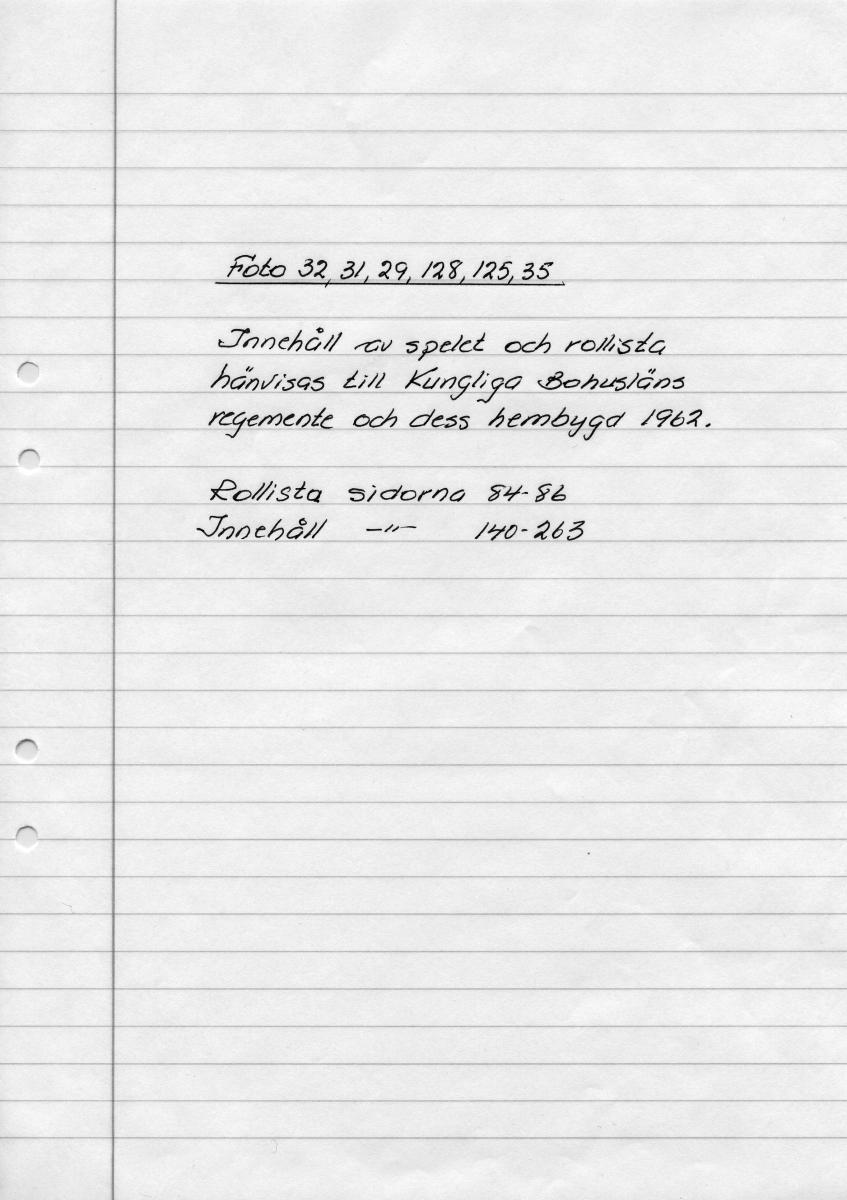 Foto 32, 31, 29, 128, 125, 35
Innehåll av spelet och rollista
hänvisas till Kungliga Bohusläns
regemente och dess hembygd 1962.
Rollista sidorna 84-86
Innehåll -"- 140-263